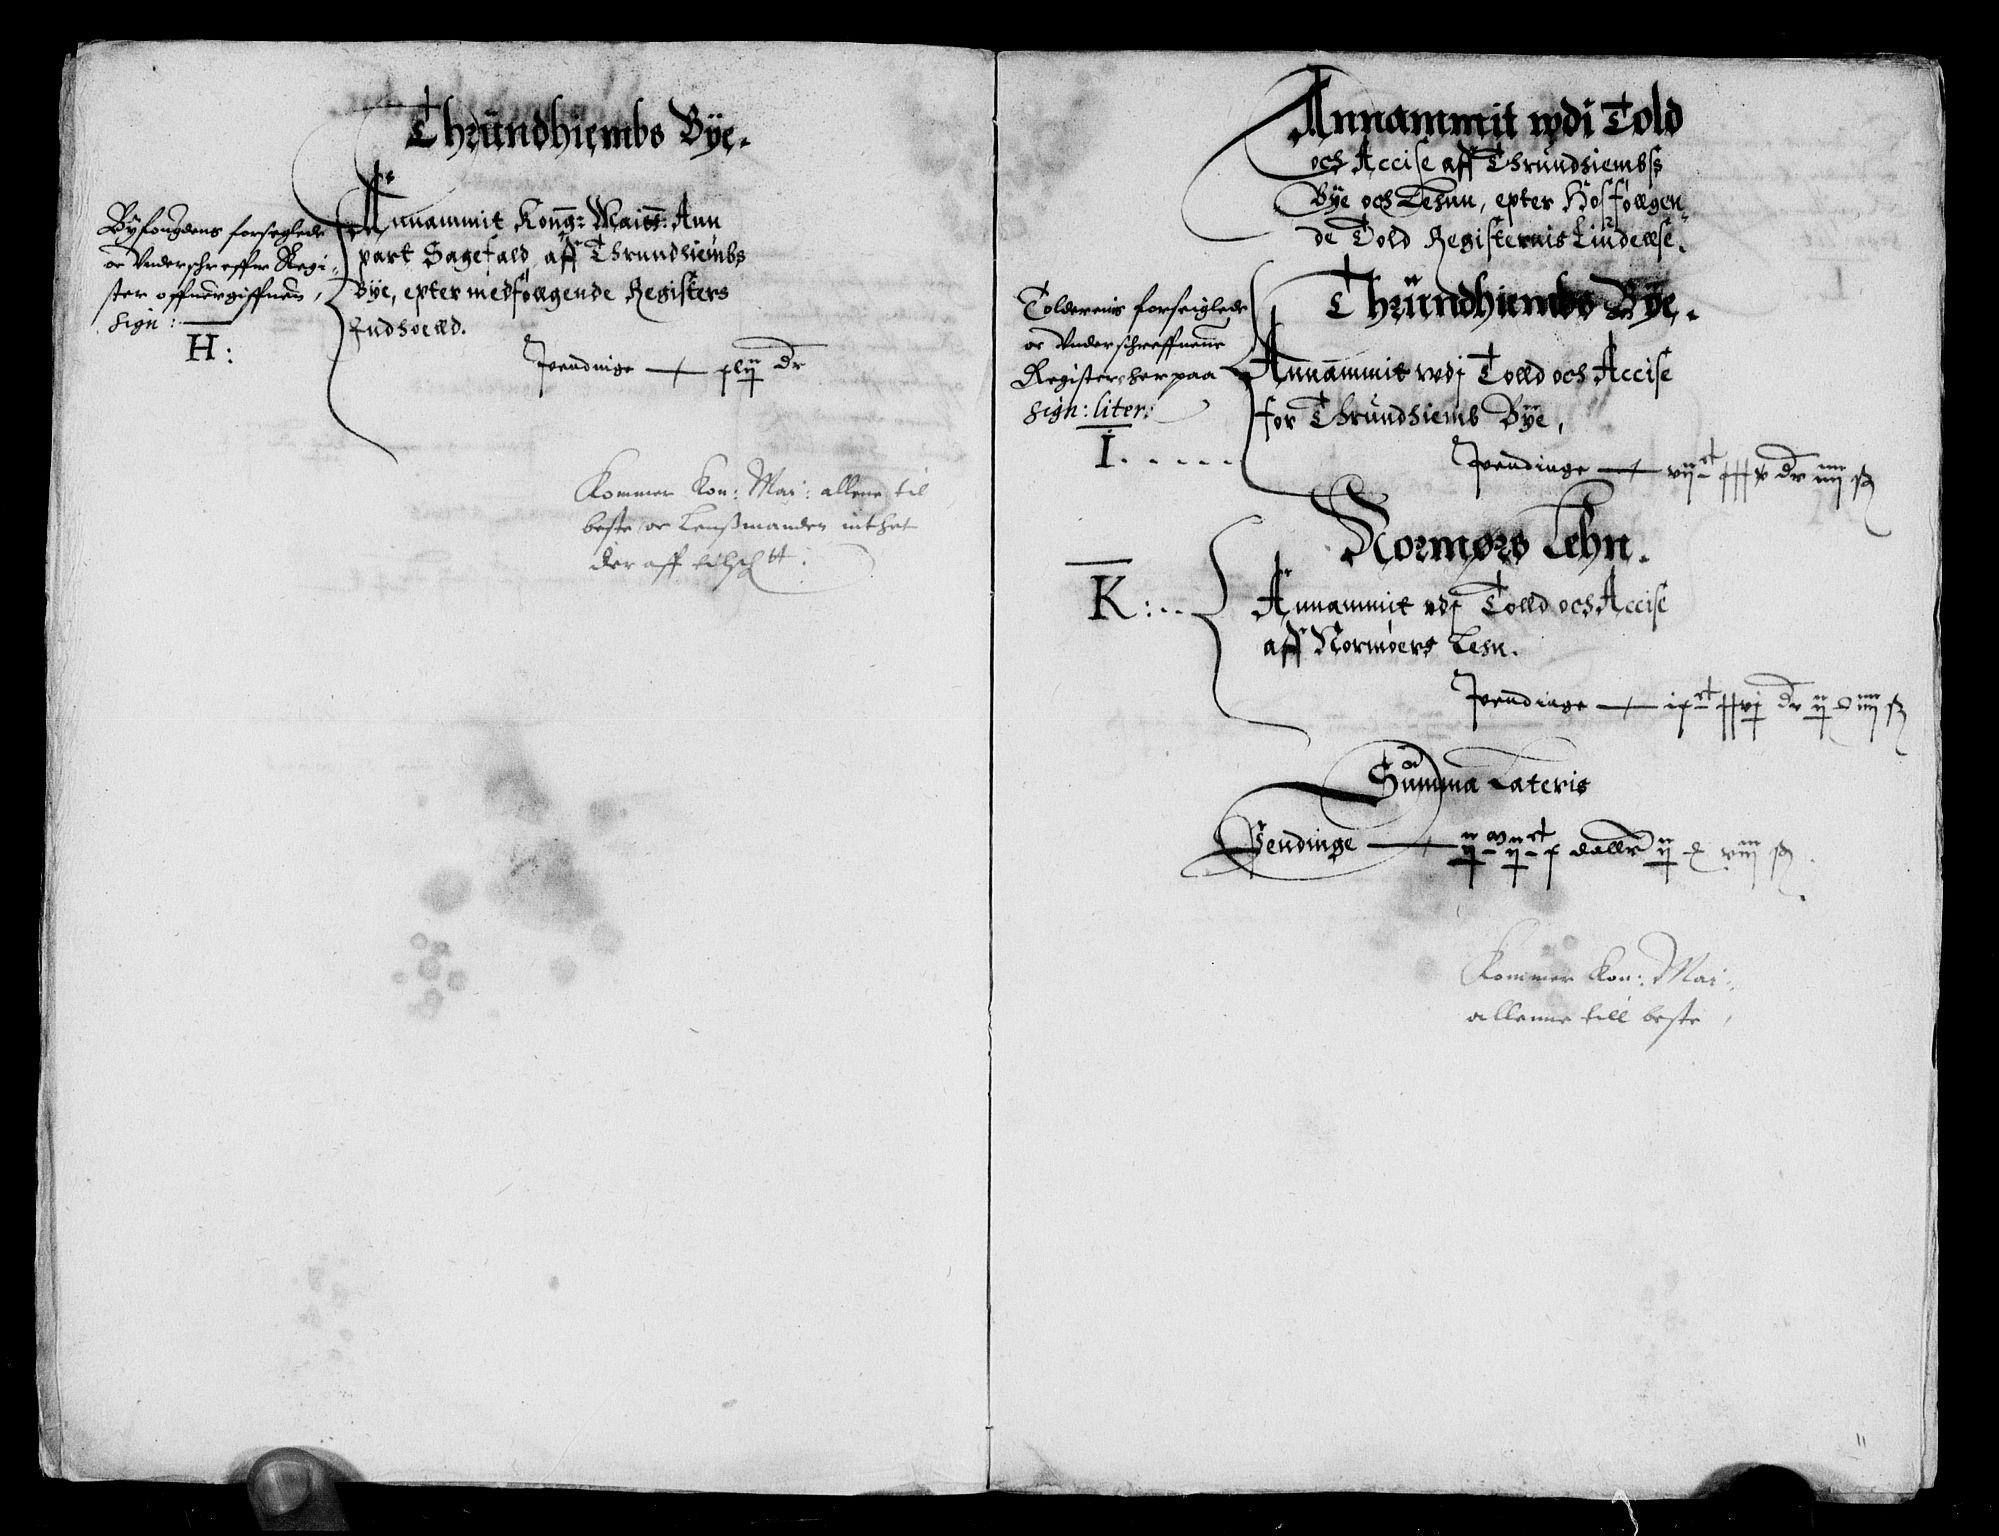 Thrundhiembs Bÿe.
Bÿfougdens forseglede
oc Underschreffne Regi-
ster offuergiffuen,
sign:
H:
Annammit Kong: Maitt: Ann
part Sagefald aff Thrundhiembs
Bÿe, epter medføllgende Registers
Indhold.
Pendinge — xlij dr
Kommer Kon: Mai: allene til
beste, oc Lenßmanden inthet
der aff
Annammit wdi Told
och Accise aff Thrundhiembss
Bÿe och Lehnn, epter Hosføllgen-
de Told Registernis Liudellse.
Thrundhiembs Bÿe.
Tolderens forseiglede
oc Underschreffuene
Register her paa
sign: liter:
I.....
Annammit wdj Tolld och Accise
for Thrundhiembs Bÿe,
Pendinge — vijct xxxv dr iiij ß
Normørs Lehn.
K:..
Annammit wdj Tolld och Accise
aff Normøers Lehn.
Pendinge — ixct xxvj dr ij iiij ß
Summa Lateris
Pendinge — daller ij viij ß
Kommer Kon: Mai:
allenne till beste,
11